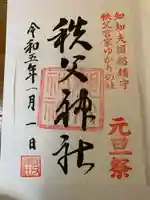 知知夫国総鎮守
秩父宮家ゆかりの社
元旦祭
秩父神社
令和五年一月一日